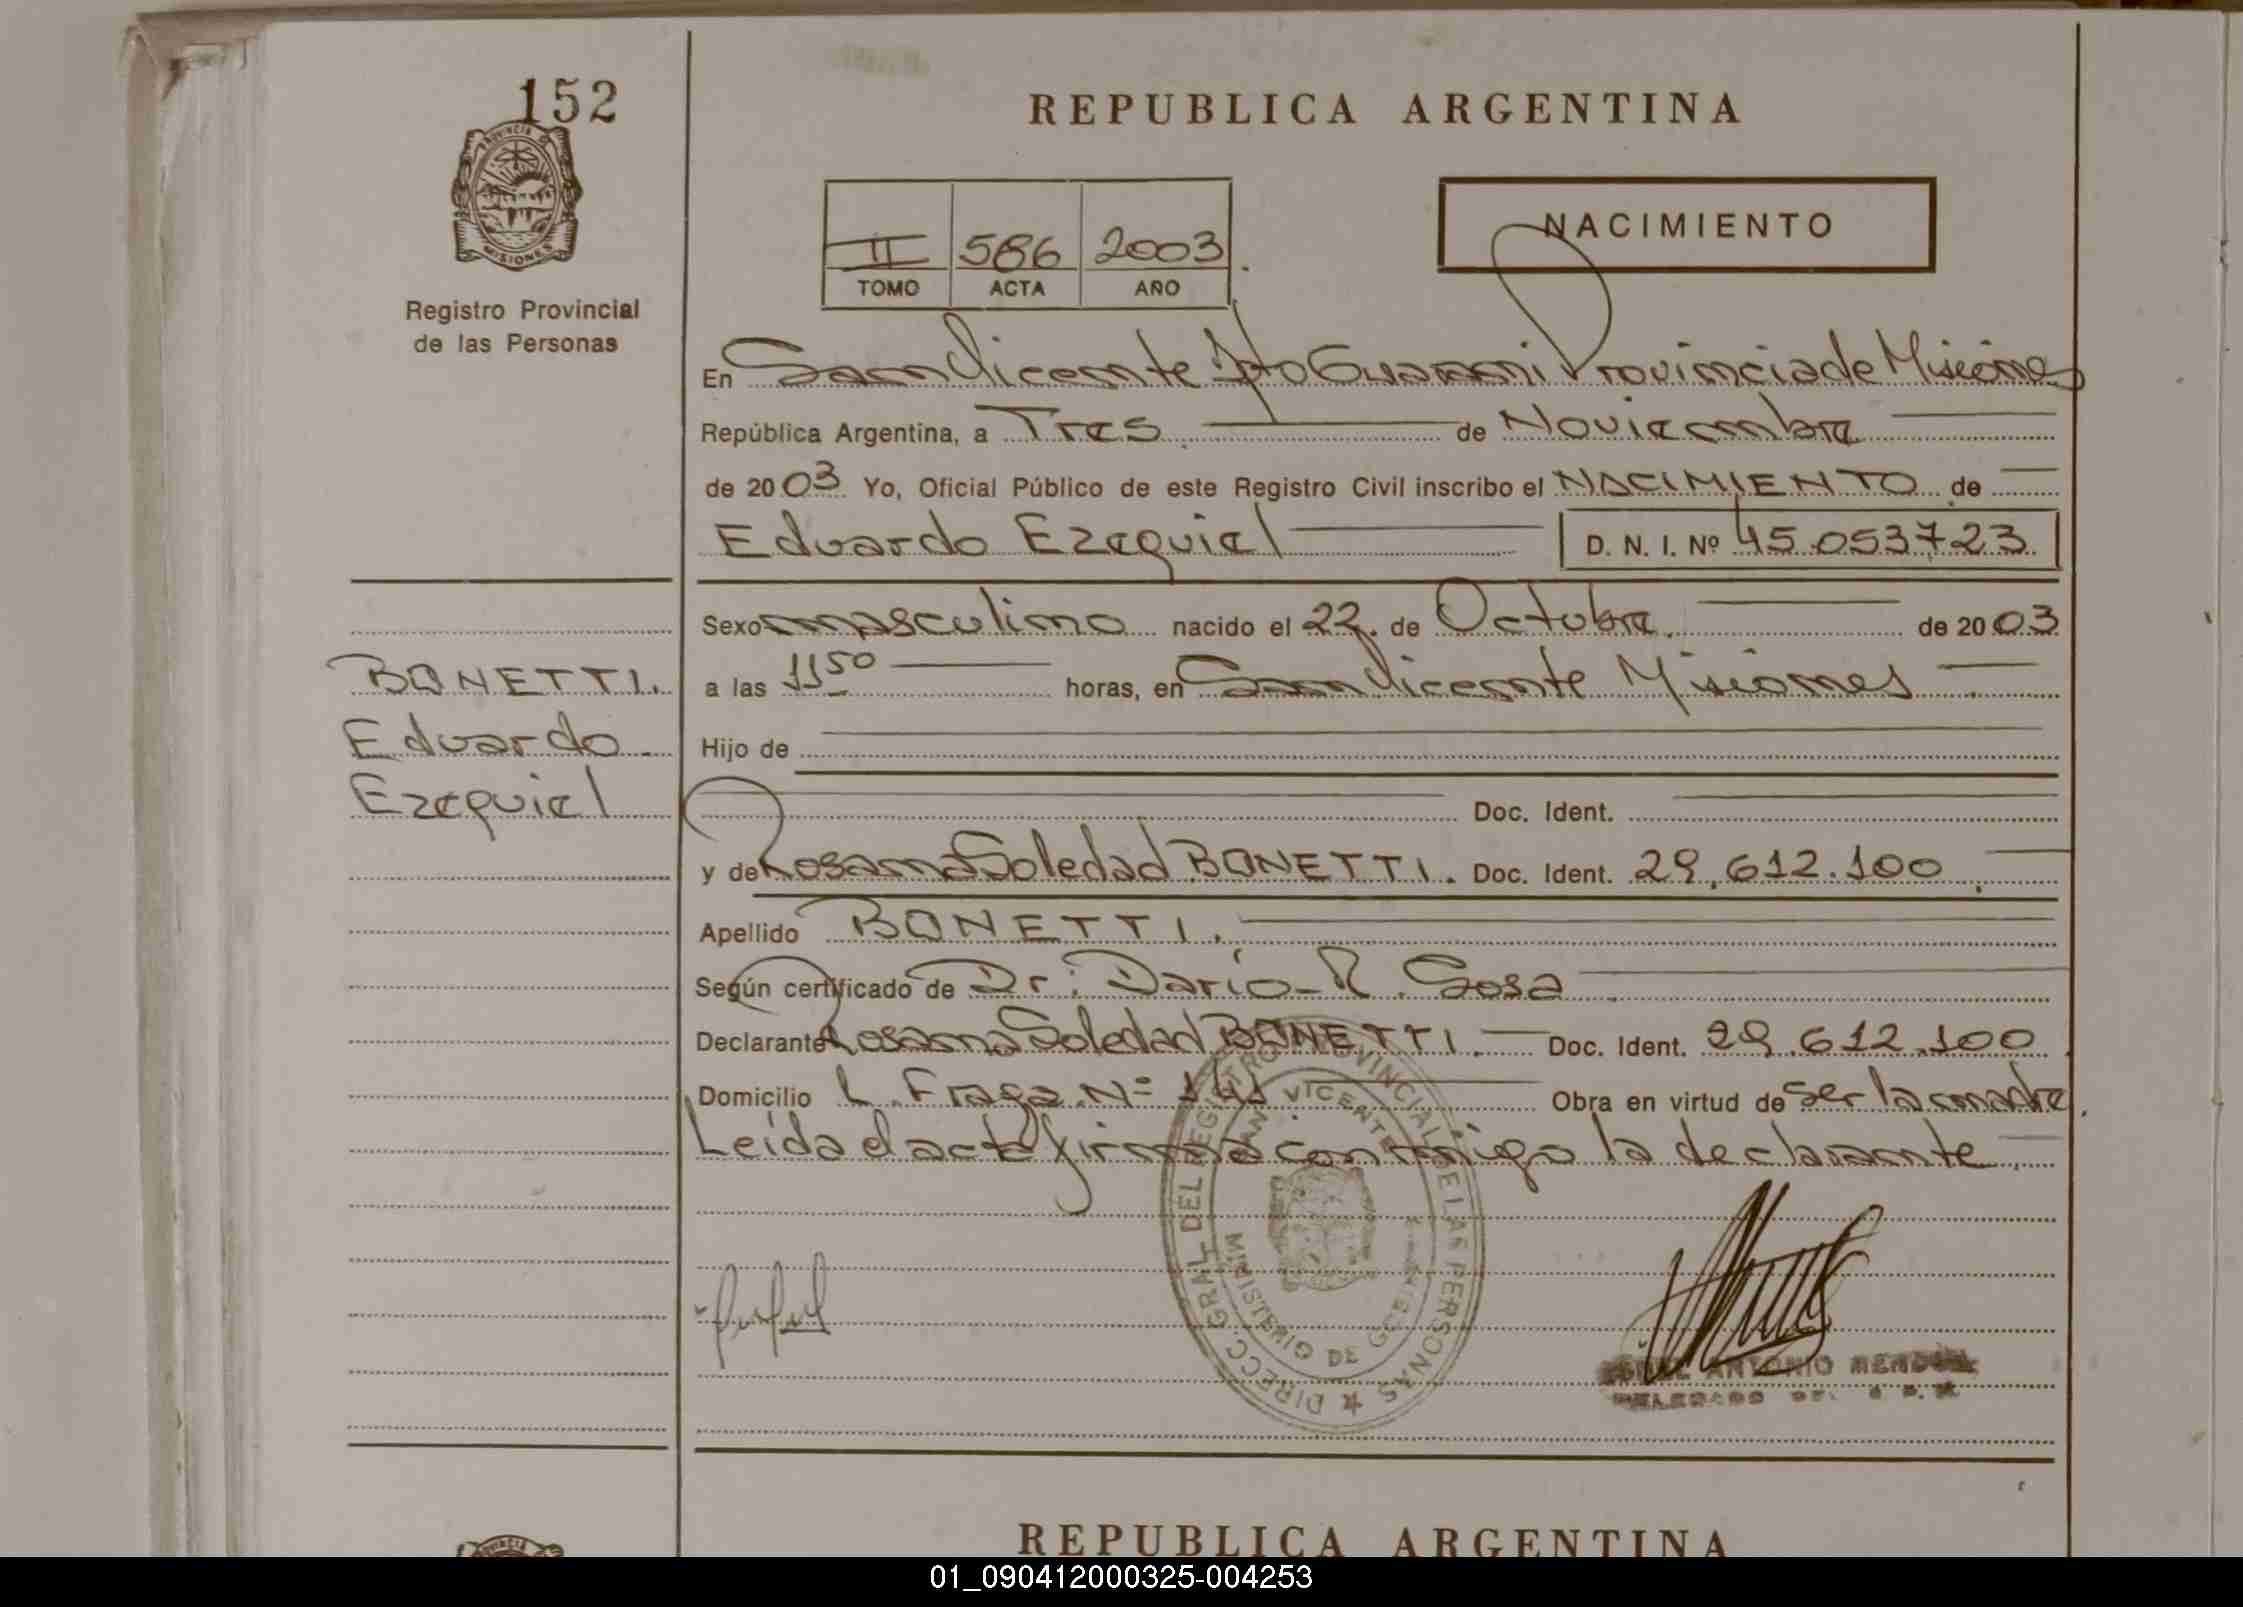 152
REPUBLICA ARGENTINA
PROVINCIA DE MISIONES
Registro Provincial
de las Personas
II 586 2003
TOMO ACTA AÑO
NACIMIENTO
En San Vicente Dpto Guarani Provincia de Misiones
República Argentina, a Tres de Noviembre
de 2003 Yo, Oficial Público de este Registro Civil inscribo el NACIMIENTO de
Eduardo Ezequiel D. N. I. Nº 45.053723
Sexo masculino nacido el 22 de Octubre de 2003
a las 11 50 horas, en San Vicente Misiones
BONETTI.
Eduardo
Ezequiel
Hijo de
Doc. Ident.
y de Rosana Soledad BONETTI. Doc. Ident. 29.612.100
Apellido BONETTI.
Según certificado de Dr: Darío R. Sosa
Declarante Rosana Soledad BONETTI. Doc. Ident. 29.612.100
Domicilio L. Fraga Nº 141 Obra en virtud de ser la madre.
Leída el acta firma conmigo la declarante
DIRECC. GRAL. DEL REGISTRO PROVINCIAL DE LAS PERSONAS
SAN VICENTE
MINISTERIO DE GOBIERNO
ANTONIO
REPUBLICA ARGENTINA
01_090412000325-004253